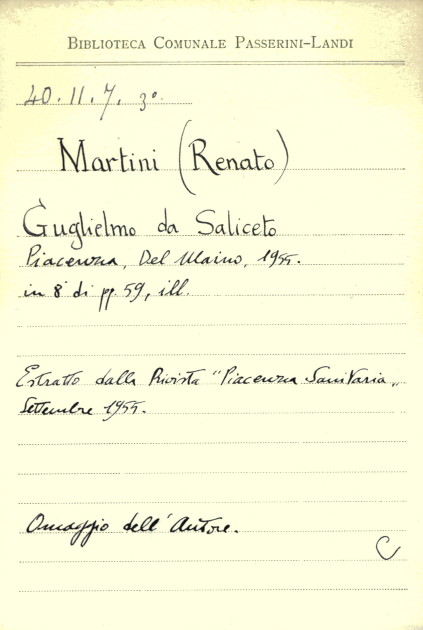 BIBLIOTECA COMUNALE PASSERINI-LANDI
40. II. 7. 3º.
Martini (Renato)
Guglielmo da Saliceto
Piacenza, Del Maino, 1955.
in 8º di pp. 59, ill.
Estratto dalla Rivista "Piacenza Sanitaria„
Settembre 1955.
Omaggio dell'Autore.
C